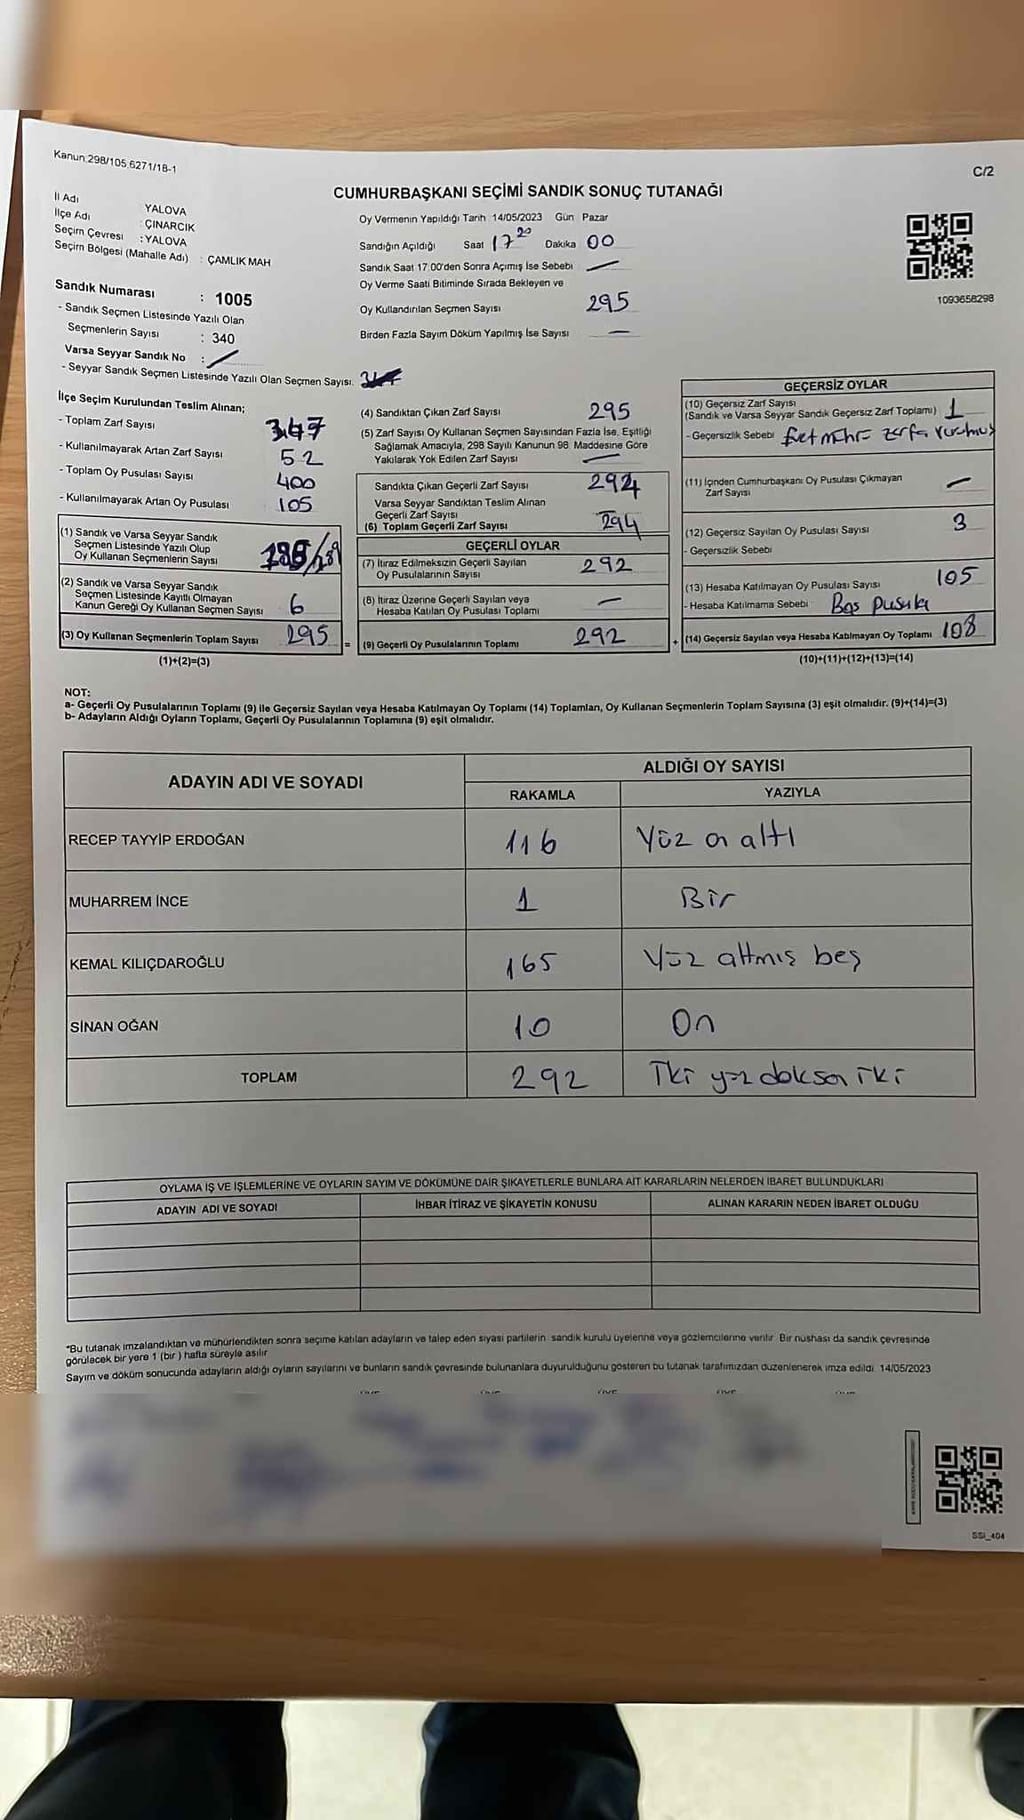 Kanun:298/105,6271/18-1
C/2
CUMHURBAŞKANI SEÇİMİ SANDIK SONUÇ TUTANAĞI
İl Adı YALOVA
İlçe Adı : ÇINARCIK
Seçim Çevresi : YALOVA
Seçim Bölgesi (Mahalle Adı) : ÇAMLIK MAH
Oy Vermenin Yapıldığı Tarih 14/05/2023 Gün Pazar
Sandığın Açıldığı Saat 17 20 Dakika 00
Sandık Saat 17:00'den Sonra Açımış İse Sebebi —
Oy Verme Saati Bitiminde Sırada Bekleyen ve
Oy Kullandırılan Seçmen Sayısı 295
Birden Fazla Sayım Döküm Yapılmış İse Sayısı —
1093658298
Sandık Numarası : 1005
- Sandık Seçmen Listesinde Yazılı Olan
Seçmenlerin Sayısı : 340
Varsa Seyyar Sandık No :
- Seyyar Sandık Seçmen Listesinde Yazılı Olan Seçmen Sayısı:
İlçe Seçim Kurulundan Teslim Alınan;
- Toplam Zarf Sayısı 347
- Kullanılmayarak Artan Zarf Sayısı 52
- Toplam Oy Pusulası Sayısı 400
- Kullanılmayarak Artan Oy Pusulası 105
(1) Sandık ve Varsa Seyyar Sandık
Seçmen Listesinde Yazılı Olup
Oy Kullanan Seçmenlerin Sayısı
(2) Sandık ve Varsa Seyyar Sandık
Seçmen Listesinde Kayıtlı Olmayan
Kanun Gereği Oy Kullanan Seçmen Sayısı 6
(3) Oy Kullanan Seçmenlerin Toplam Sayısı 295 =
(1)+(2)=(3)
(4) Sandıktan Çıkan Zarf Sayısı 295
(5) Zarf Sayısı Oy Kullanan Seçmen Sayısından Fazla İse, Eşitliği
Sağlamak Amacıyla, 298 Sayılı Kanunun 98. Maddesine Göre
Yakılarak Yok Edilen Zarf Sayısı —
Sandıkta Çıkan Geçerli Zarf Sayısı 294
Varsa Seyyar Sandıktan Teslim Alınan
Geçerli Zarf Sayısı —
(6) Toplam Geçerli Zarf Sayısı 294
GEÇERLİ OYLAR
(7) İtiraz Edilmeksizin Geçerli Sayılan
Oy Pusulalarının Sayısı 292
(8) İtiraz Üzerine Geçerli Sayılan veya
Hesaba Katılan Oy Pusulası Toplamı —
(9) Geçerli Oy Pusulalarının Toplamı 292 +
GEÇERSİZ OYLAR
(10) Geçersiz Zarf Sayısı
(Sandık ve Varsa Seyyar Sandık Geçersiz Zarf Toplamı) 1
- Geçersizlik Sebebi zarfa
(11) İçinden Cumhurbaşkanı Oy Pusulası Çıkmayan
Zarf Sayısı —
(12) Geçersiz Sayılan Oy Pusulası Sayısı 3
- Geçersizlik Sebebi
(13) Hesaba Katılmayan Oy Pusulası Sayısı 105
- Hesaba Katılmama Sebebi Boş pusula
(14) Geçersiz Sayılan veya Hesaba Katılmayan Oy Toplamı 108
(10)+(11)+(12)+(13)=(14)
NOT:
a- Geçerli Oy Pusulalarının Toplamı (9) ile Geçersiz Sayılan veya Hesaba Katılmayan Oy Toplamı (14) Toplamları, Oy Kullanan Seçmenlerin Toplam Sayısına (3) eşit olmalıdır. (9)+(14)=(3)
b- Adayların Aldığı Oyların Toplamı, Geçerli Oy Pusulalarının Toplamına (9) eşit olmalıdır.
ADAYIN ADI VE SOYADI
ALDIĞI OY SAYISI
RAKAMLA YAZIYLA
RECEP TAYYİP ERDOĞAN 116 Yüz on altı
MUHARREM İNCE 1 Bir
KEMAL KILIÇDAROĞLU 165 Yüz altmış beş
SİNAN OĞAN 10 On
TOPLAM 292 İki yüz doksan iki
OYLAMA İŞ VE İŞLEMLERİNE VE OYLARIN SAYIM VE DÖKÜMÜNE DAİR ŞİKAYETLERLE BUNLARA AİT KARARLARIN NELERDEN İBARET BULUNDUKLARI
ADAYIN ADI VE SOYADI İHBAR İTİRAZ VE ŞİKAYETİN KONUSU ALINAN KARARIN NEDEN İBARET OLDUĞU
*Bu tutanak imzalandıktan ve mühürlendikten sonra seçime katılan adayların ve talep eden siyasi partilerin sandık kurulu üyelerine veya gözlemcilerine verilir. Bir nüshası da sandık çevresinde
görülecek bir yere 1 (bir) hafta süreyle asılır
Sayım ve döküm sonucunda adayların aldığı oyların sayılarını ve bunların sandık çevresinde bulunanlara duyurulduğunu gösteren bu tutanak tarafımızdan düzenlenerek imza edildi. 14/05/2023
SSI_404